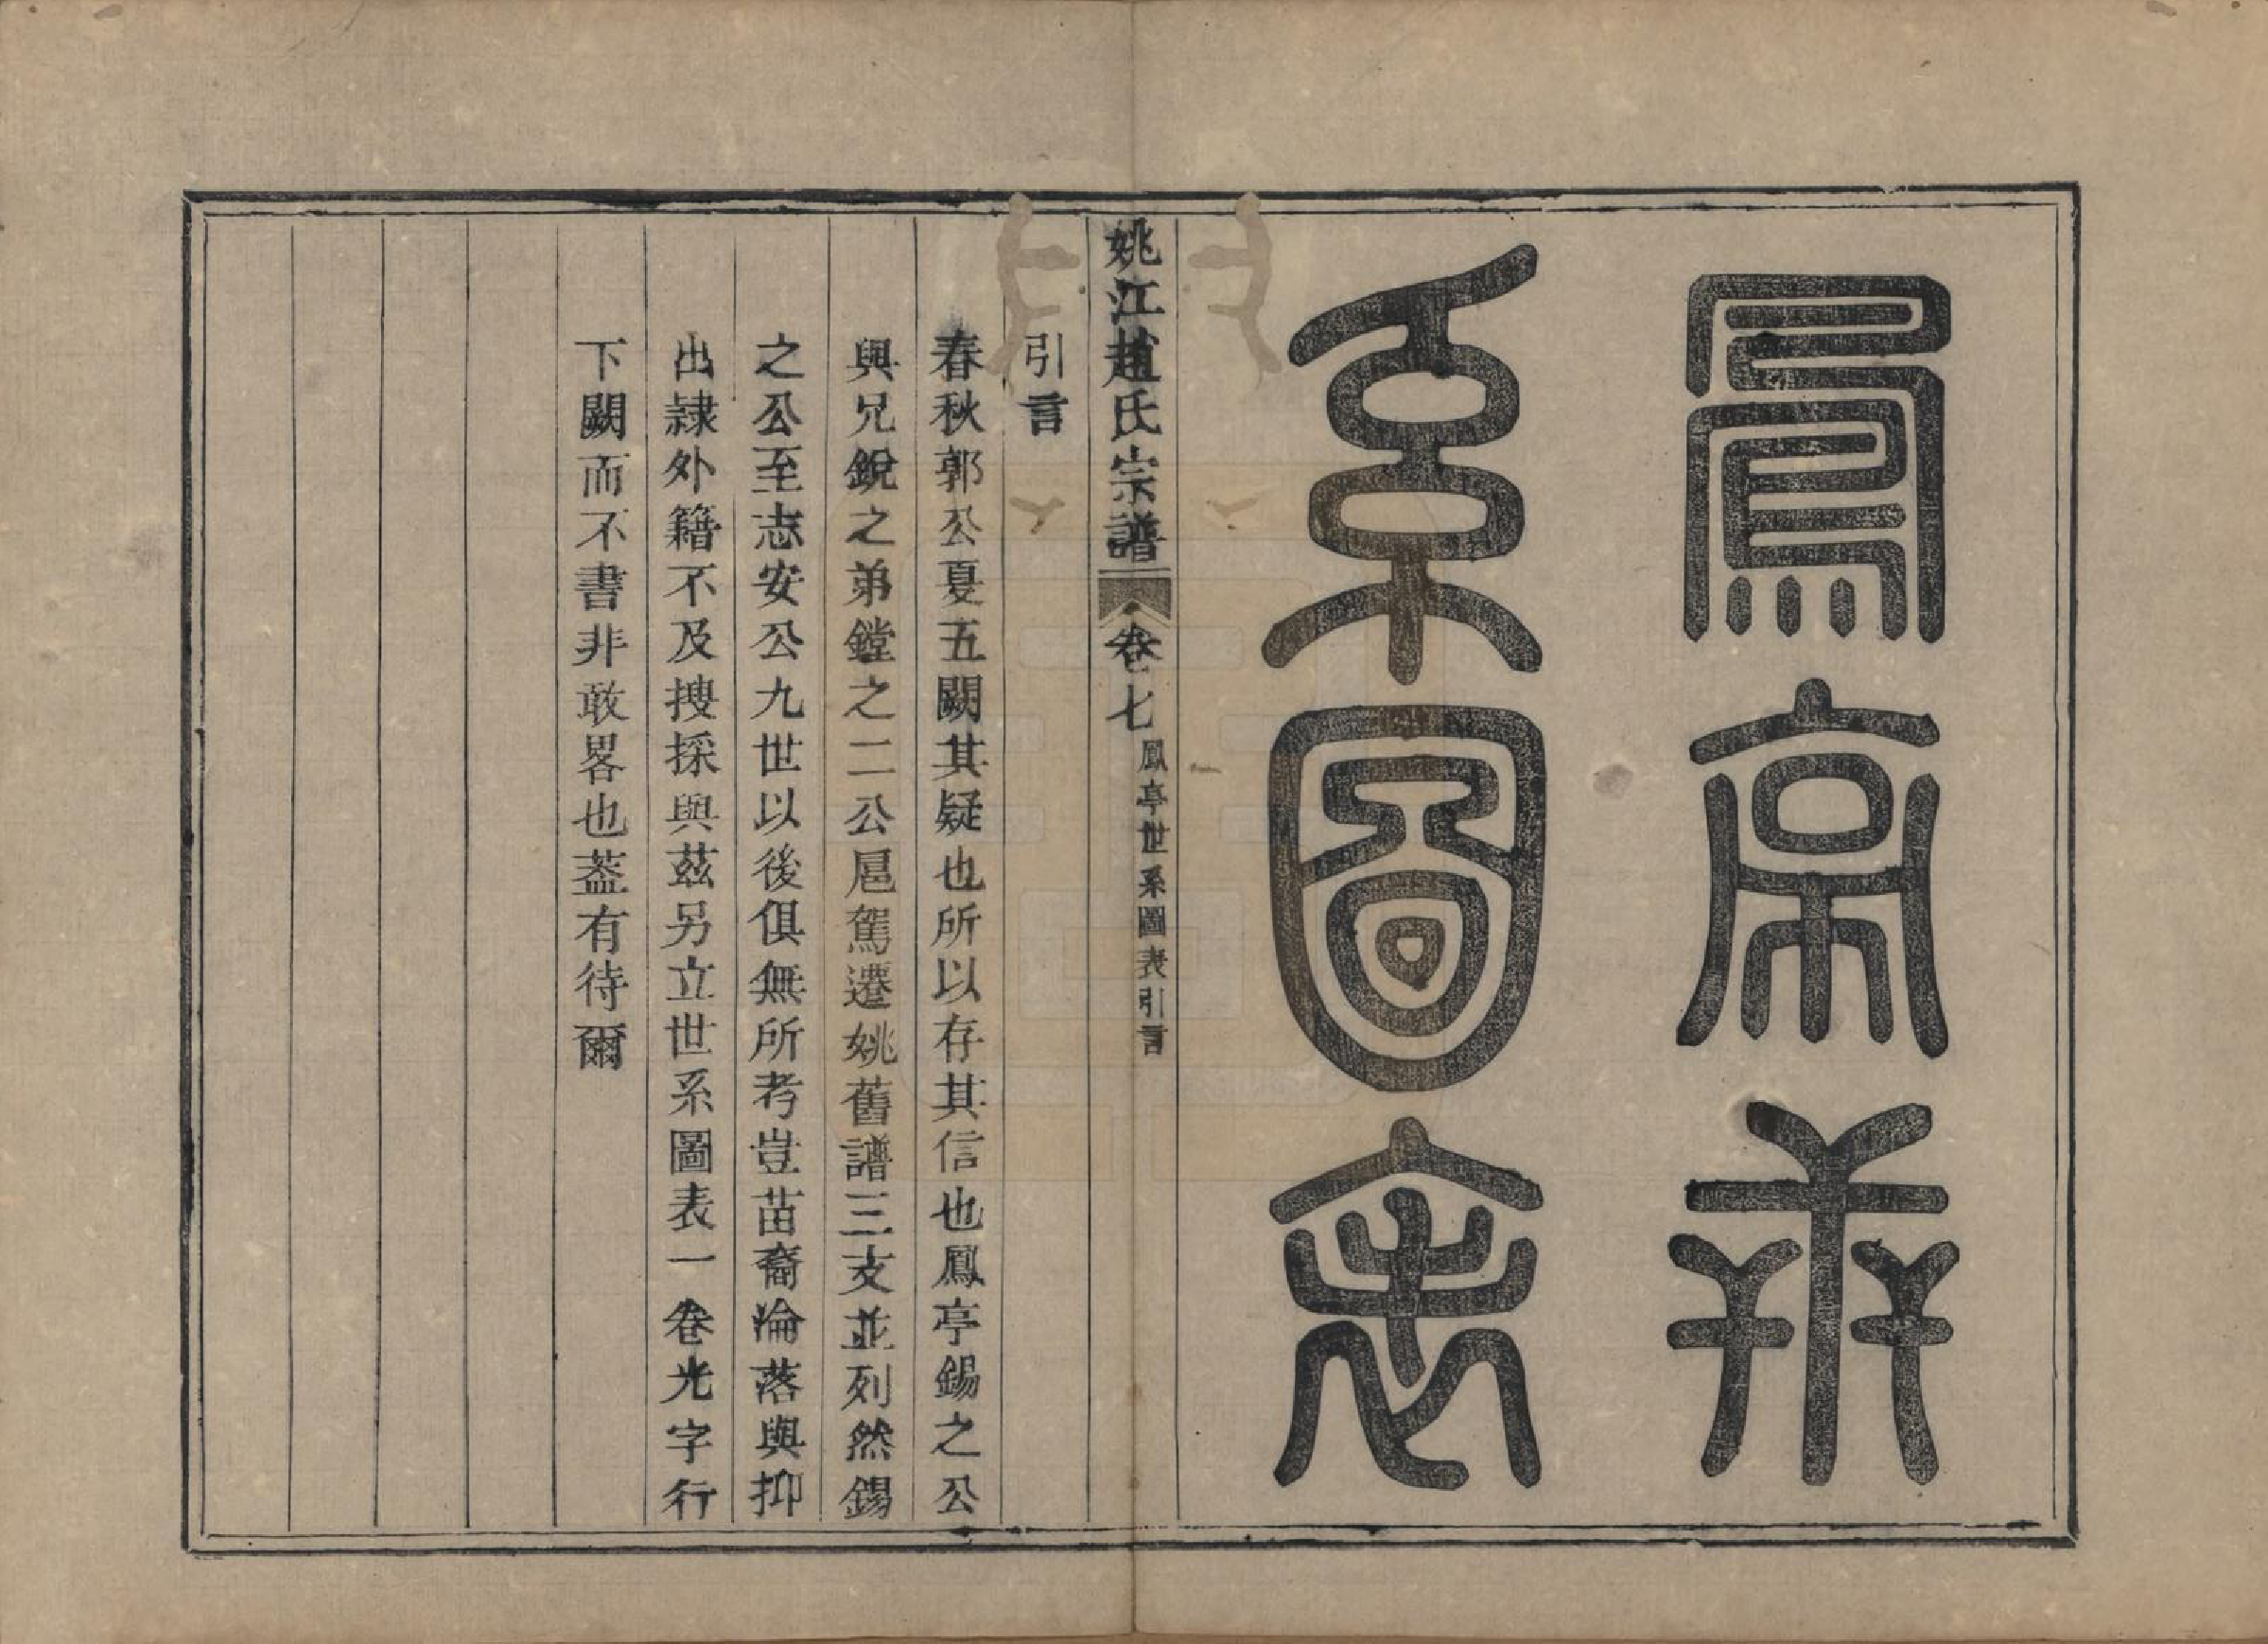 鳳亭世
系圖表
姚江趙氏宗譜 卷七 鳳亭世系圖表引言
引言
春秋郭公夏五闕其疑也所以存其信也鳳亭錫之公
與兄銳之弟鏜之二公扈駕遷姚舊譜三支並列然錫
之公至志安公九世以後俱無所考豈苗裔淪落與抑
出隷外籍不及搜採與茲另立世系圖表一卷光字行
下闕而不書非敢畧也蓋有待爾